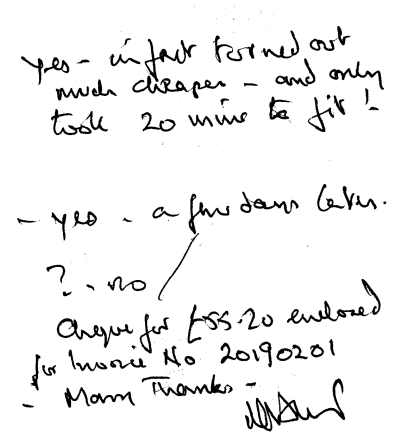 yes - in fact turned out
much cheaper - and only
took 20 mins to fit!
- yes - a few days later.
? - no
Cheque for £55.20 enclosed
for Invoice No 20190201
- Many Thanks -